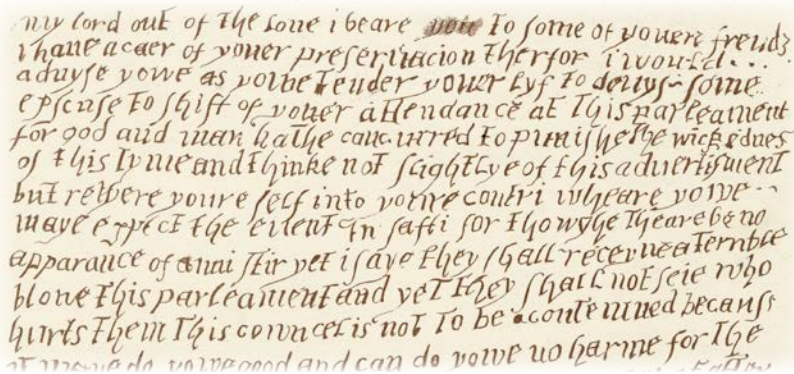 my lord out of the loue i beare you to some of youere frends
i haue a caer of youer preseruacion therfor i would
aduyse yowe as yowe tender youer lyf to deuys some
epscuse to shift of youer attendance at this parleament
for god and man hathe concurred to punishe the wickednes
of this tyme and thinke not slightlye of this aduertisment
but retyere youre self into youre contri wheare yowe
maye expect the euent in safti for thowghe theare be no
apparance of anni stir yet i saye they shall receyue a terrible
blowe this parleament and yet they shall not seie who
hurts them this cowncel is not to be acontemned becaus
it maye do yowe good and can do yowe no harme for the